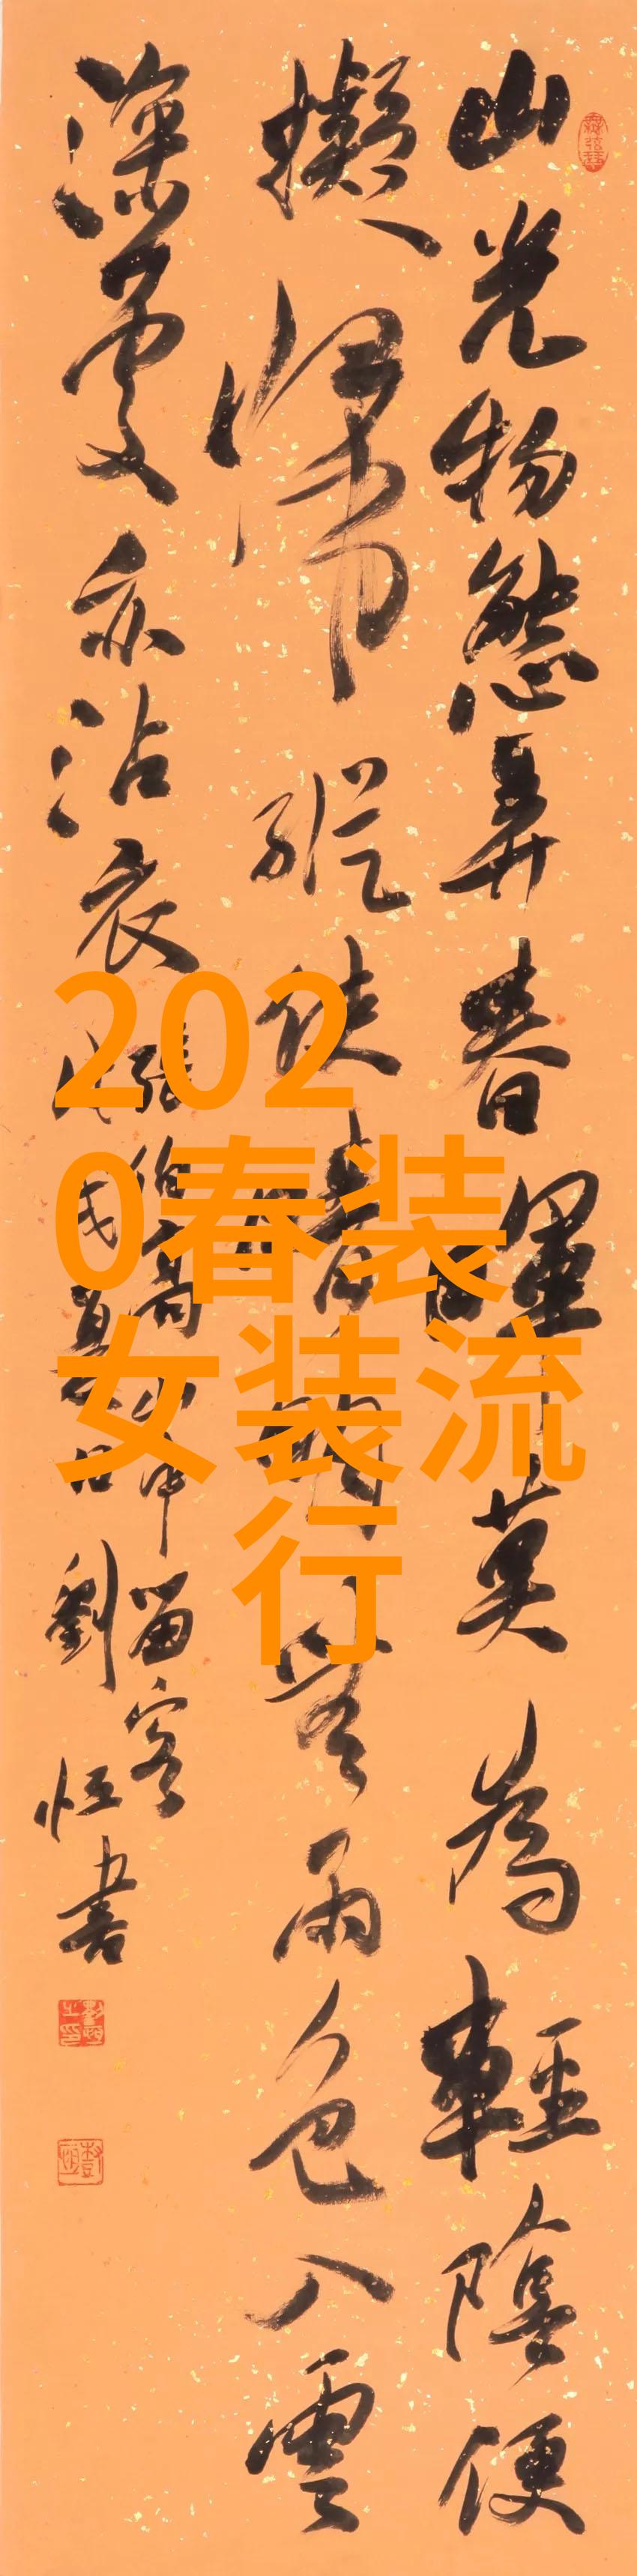 山光物態弄春暉莫為輕陰便
擬歸縱使晴明無雨色入雲
深處亦沾衣
張伯高山中留客
劉恒書
2020春装女装流行